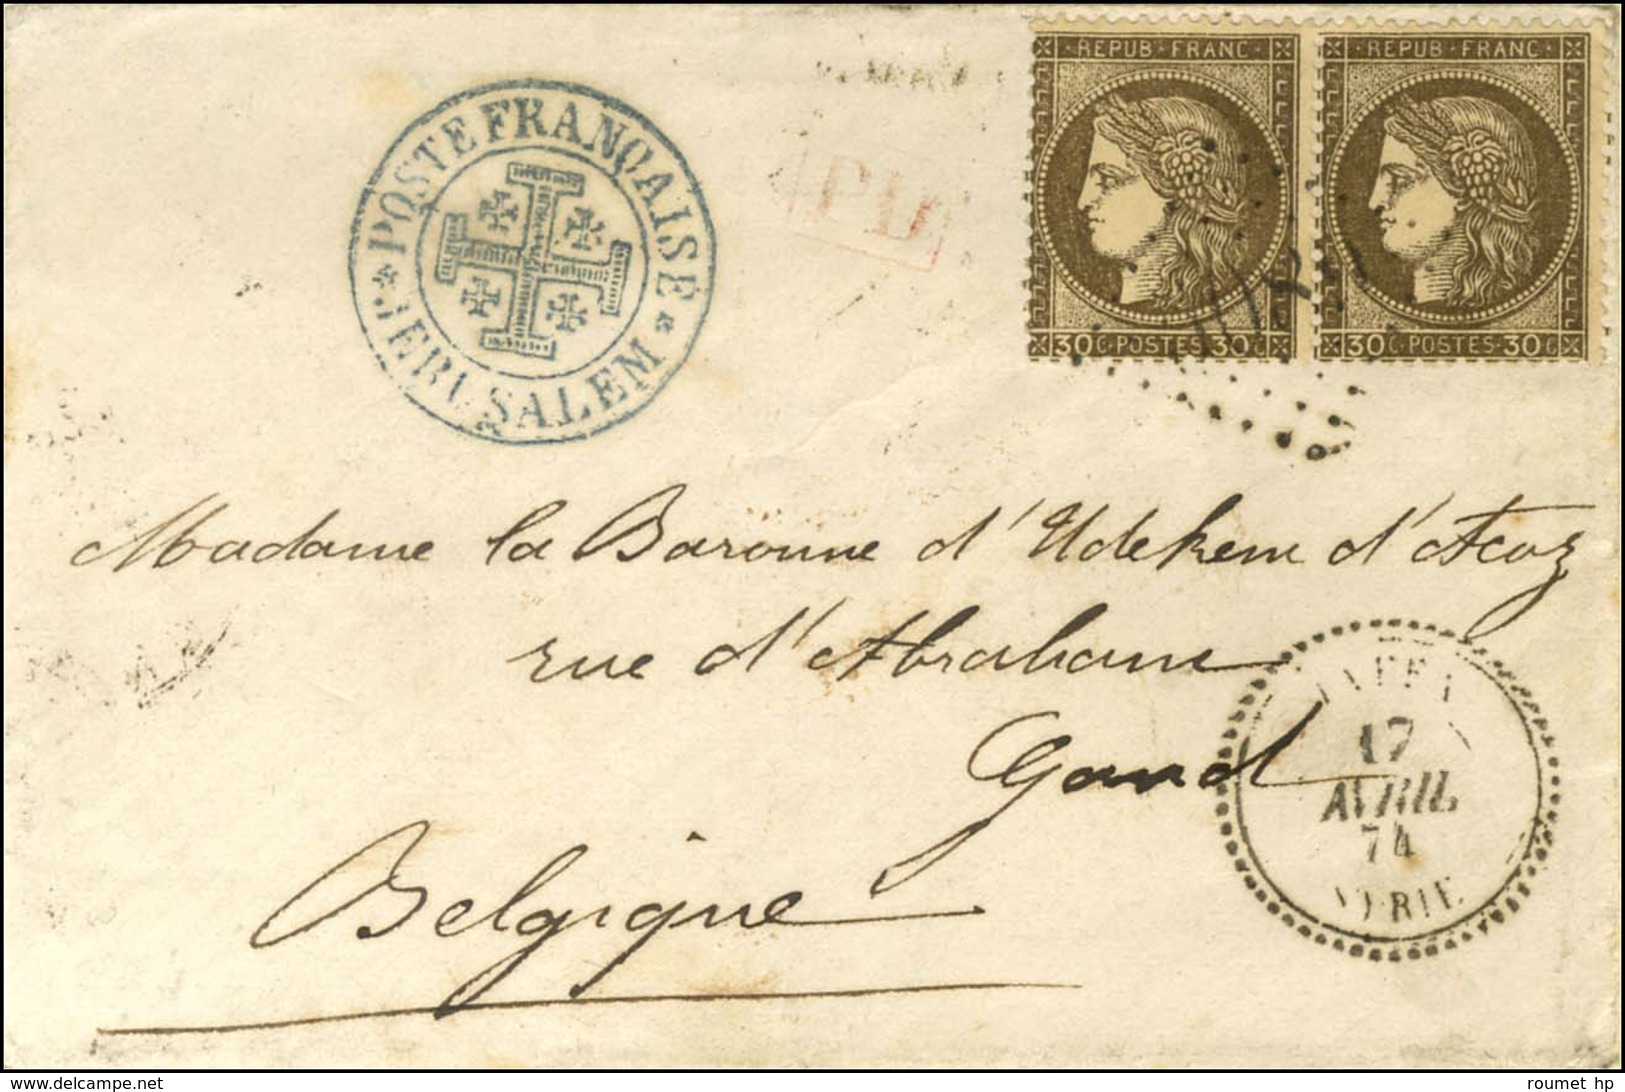 REPUB·FRANC
30C·POSTES·30C
REPUB·FRANC
30C·POSTES·30C
POSTE FRANÇAISE
JERUSALEM
PD
Madame la Baronne d'Udekem d'Acoz
rue d'Abraham
Gand
Belgique
17
AVRIL
74
SYRIE
www.delcampe.net
roumet hp